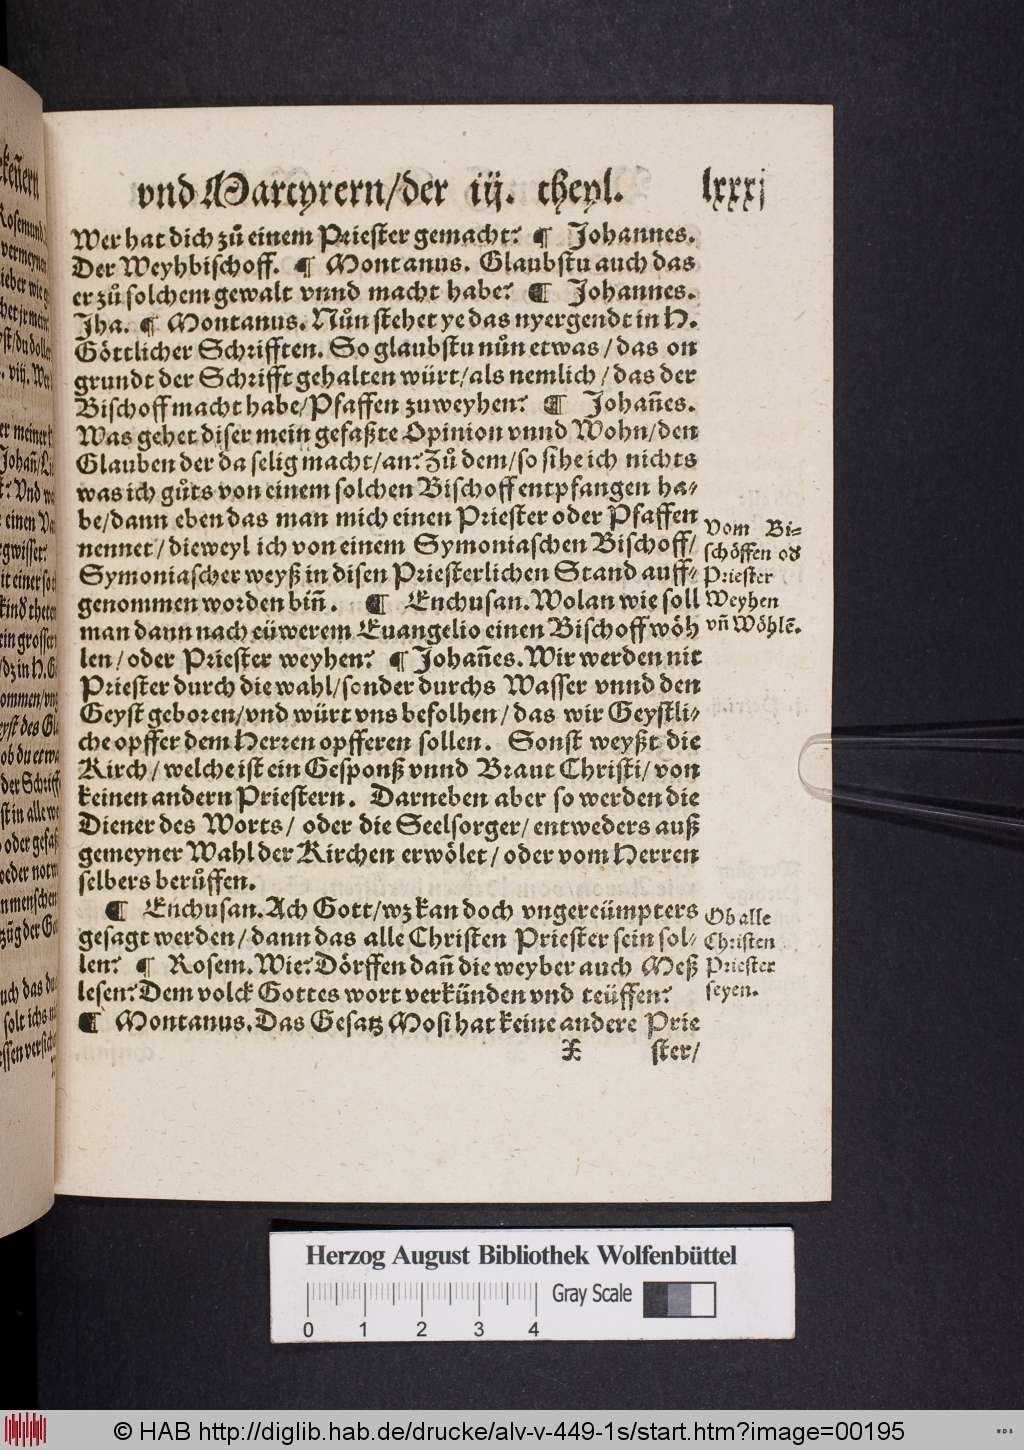 vnd Martyrern/der iij. theyl. lxxxj
Wer hat dich zů einem Priester gemacht? ¶ Johannes.
Der Weyhbischoff. ¶ Montanus. Glaubstu auch das
er zů solchem gewalt vnnd macht habe? ¶ Johannes.
Jha. ¶ Montanus. Nůn stehet ye das nyergendt in H.
Göttlicher Schrifften. So glaubstu nůn etwas/das on
grundt der Schrifft gehalten würt/als nemlich/das der
Bischoff macht habe/Pfaffen zuweyhen? ¶ Johañes.
Was gehet diser mein gefaßte Opinion vnnd Wohn/den
Glauben der da selig macht/an? Zů dem/so sihe ich nichts
was ich gůts von einem solchen Bischoff entpfangen ha⸗
be/dann eben das man mich einen Priester oder Pfaffen
nennet/dieweyl ich von einem Symoniaschen Bischoff/
Symoniascher weyß in disen Priesterlichen Stand auff⸗
genommen worden biñ. ¶ Enchusan. Wolan wie soll
man dann nach eüwerem Euangelio einen Bischoff wöh
len/oder Priester weyhen? ¶ Johañes. Wir werden nit
Priester durch die wahl/sonder durchs Wasser vnnd den
Geyst geboren/vnd würt vns befolhen/das wir Geystli⸗
che opffer dem Herren opfferen sollen. Sonst weyßt die
Kirch/welche ist ein Gesponß vnnd Braut Christi/von
keinen andern Priestern. Darneben aber so werden die
Diener des Worts/oder die Seelsorger/entweders auß
gemeyner Wahl der Kirchen erwölet/oder vom Herren
selbers berůffen.
¶ Enchusan. Ach Gott/wz kan doch vngereümpters
gesagt werden/dann das alle Christen Priester sein sol⸗
len? ¶ Rosem. Wie? Dörffen dañ die weyber auch Meß
lesen? Dem volck Gottes wort verkünden vnd teüffen?
¶ Montanus. Das Gesatz Mosi hat keine andere Prie
X ster/
Vom Bi⸗
schöffen od
Priester
Weyhen
vñ Wöhlē.
Ob alle
Christen
Priester
seyen.
Herzog August Bibliothek Wolfenbüttel
Gray Scale
0 1 2 3 4
© HAB http://diglib.hab.de/drucke/alv-v-449-1s/start.htm?image=00195